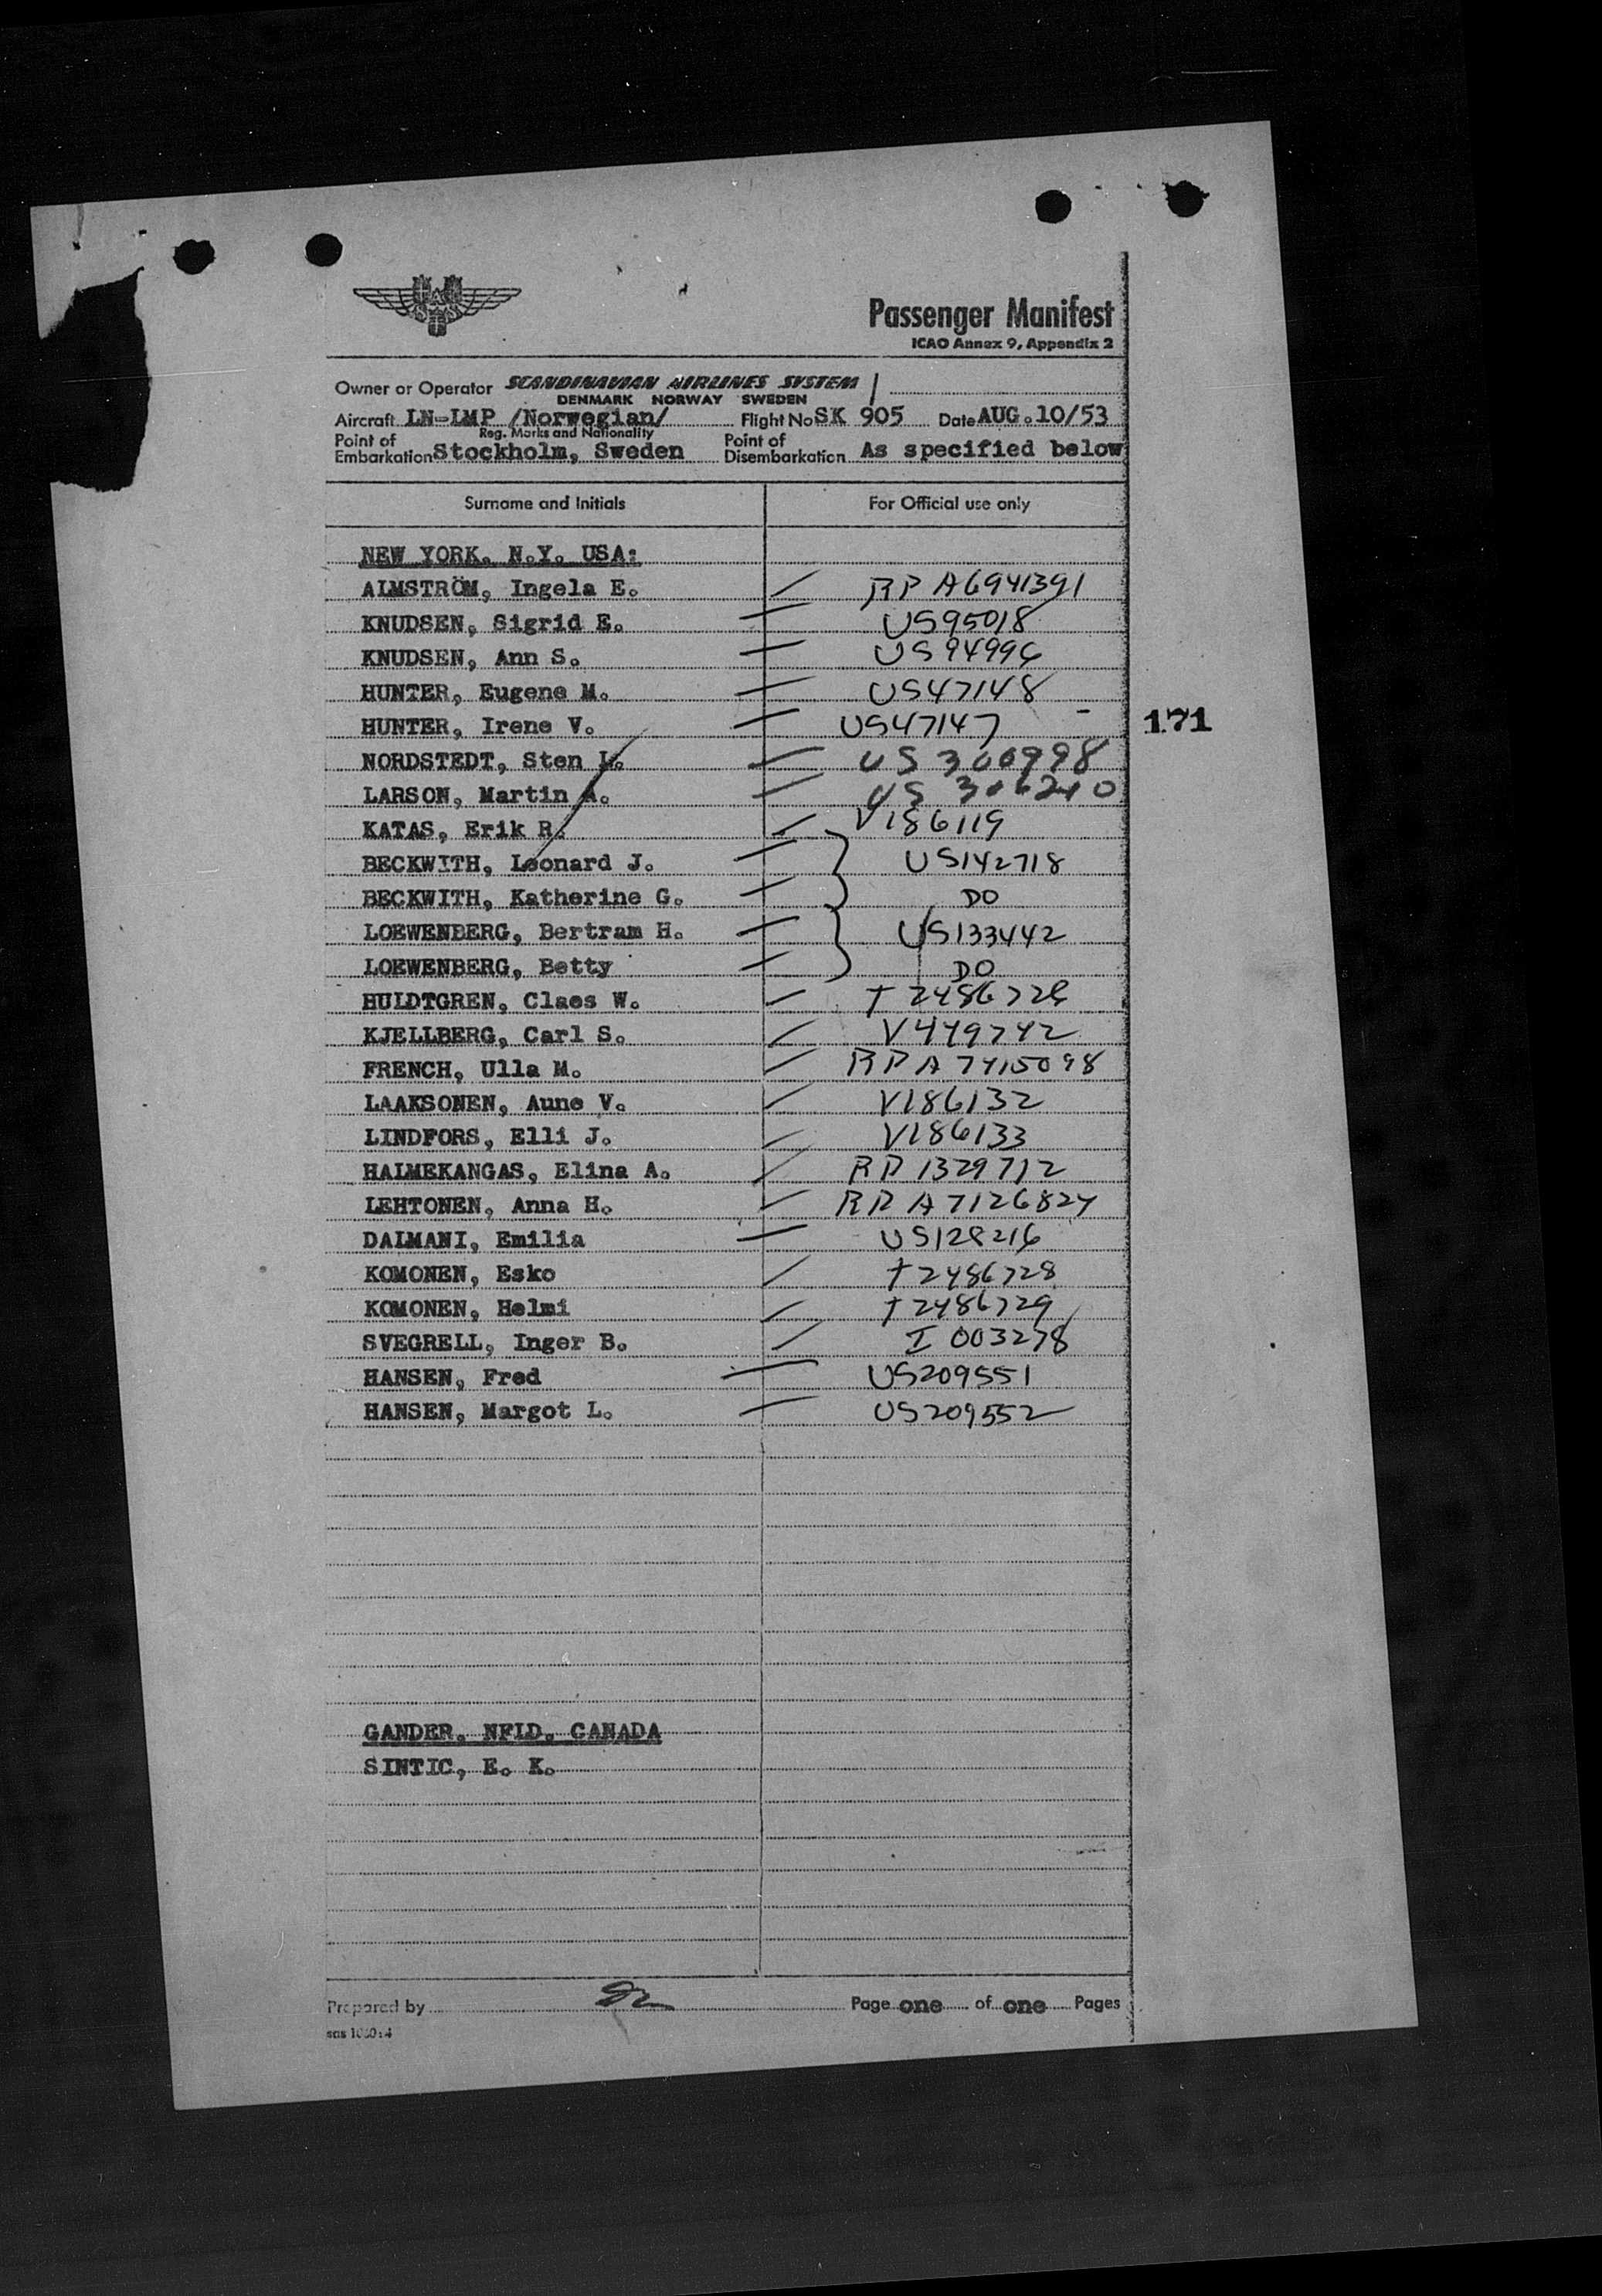 SAS
Passenger Manifest
ICAO Annex 9, Appendix 2
Owner or Operator SCANDINAVIAN AIRLINES SYSTEM
DENMARK NORWAY SWEDEN
Aircraft LN-LMP /Norwegian/ Flight No SK 905 Date AUG. 10/53
Reg. Marks and Nationality
Point of Embarkation Stockholm, Sweden Point of Disembarkation As specified below
Surname and Initials For Official use only
NEW YORK. N.Y. USA:
ALMSTRÖM, Ingela E. RP A6941391
KNUDSEN, Sigrid E. US95018
KNUDSEN, Ann S. US94996
HUNTER, Eugene M. US47148
HUNTER, Irene V. US47147 171
NORDSTEDT, Sten L. US 300998
LARSON, Martin A. US
KATAS, Erik R. V186119
BECKWITH, Leonard J. US142718
BECKWITH, Katherine G. DO
LOEWENBERG, Bertram H. US133442
LOEWENBERG, Betty DO
HULDTGREN, Claes W.
KJELLBERG, Carl S. V449742
FRENCH, Ulla M. RP A7415098
LAAKSONEN, Aune V. V186132
LINDFORS, Elli J. V186133
HALMEKANGAS, Elina A. RP 1329712
LEHTONEN, Anna H. RP A7126824
DALMANI, Emilia US128216
KOMONEN, Esko T2486728
KOMONEN, Helmi T2486729
SVEGRELL, Inger B. I 003278
HANSEN, Fred US209551
HANSEN, Margot L. US209552
GANDER. NFLD. CANADA
SINTIC, E. K.
Prepared by Page one of one Pages
sas